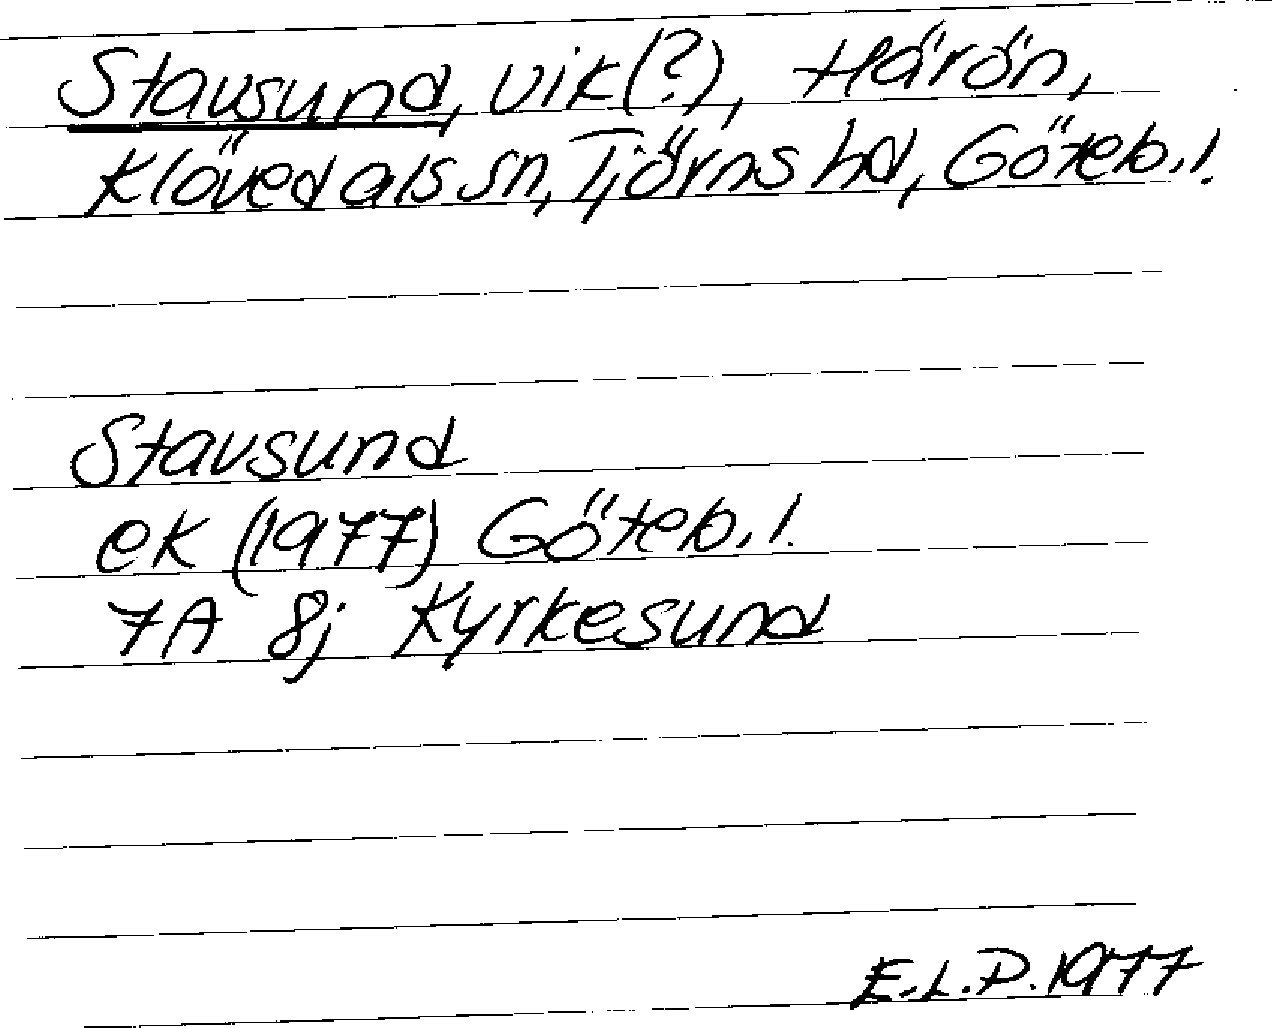 Stavsund, vik(?), Härön,
Klövedals sn, Tjörns hd, Göteb. l.
Stavsund
ek (1977) Göteb. l.
7A 8j Kyrkesund
E.L.P. 1977